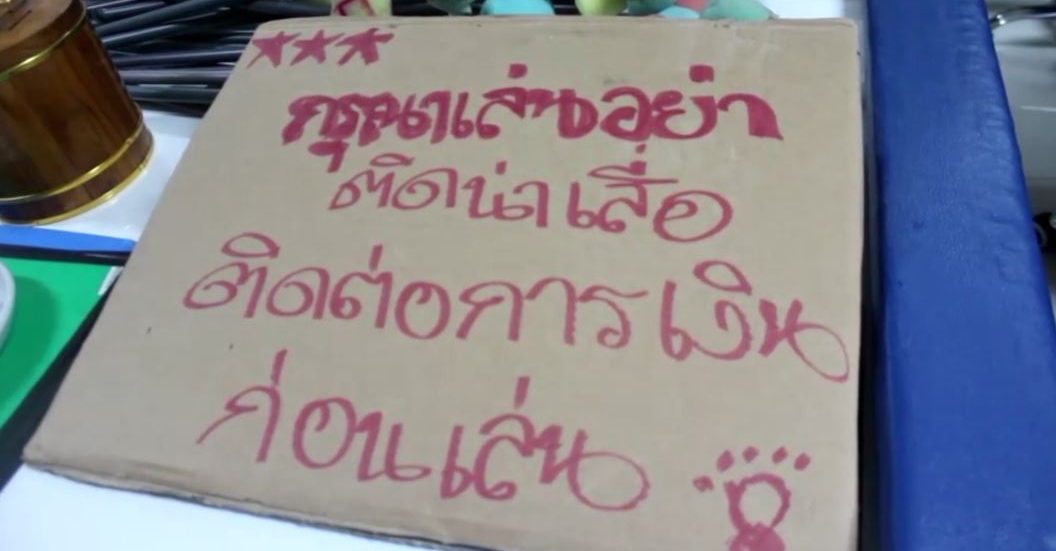 ***
กรุณาเล่นอย่า
ติดน่าเสื่อ
ติดต่อการเงิน
ก่อนเล่น